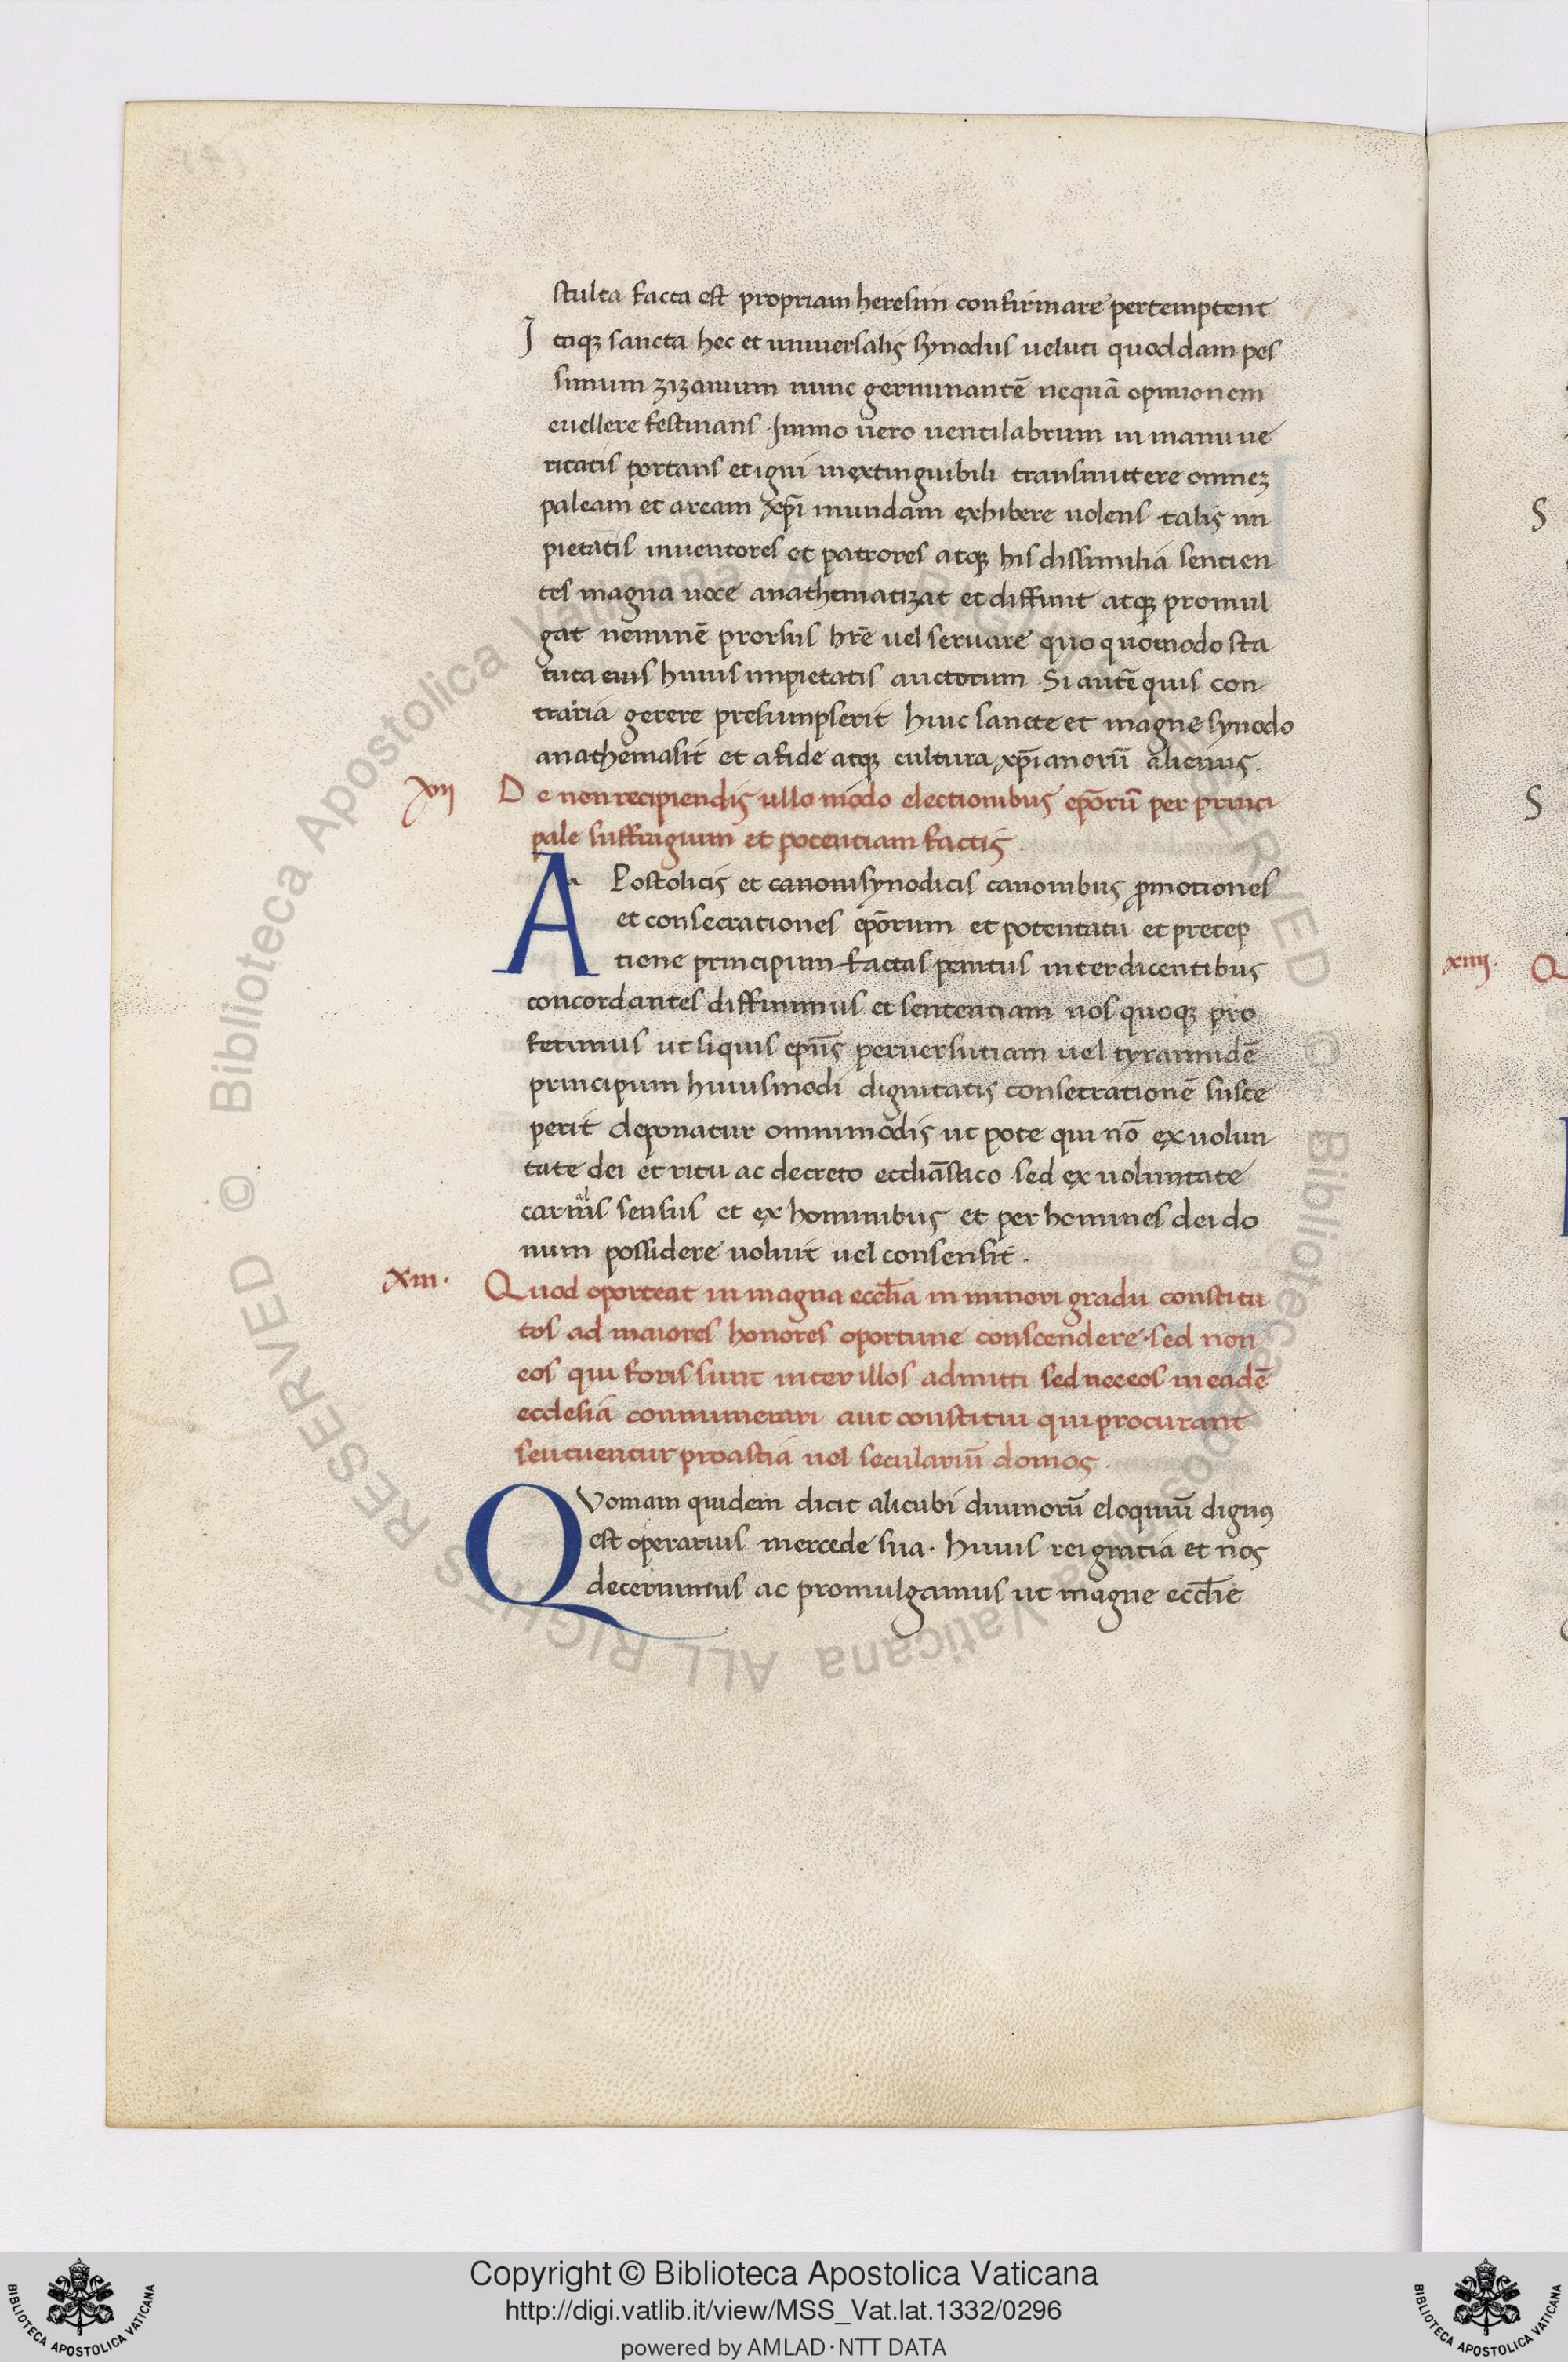 stulta facta est propriam heresim confirmare pertemptent
J taq; sancta hec et uniuersalis synodus ueluti quoddam pes
simum zizanium nunc germinantē nequā opinionem
euellere festinans · Immo uero uentilabrum in manu ue
ritatis portans et igni inextinguibili transmittere omnez
paleam et aream xp̄i mundam exhibere uolens · talis im
pietatis inuentores et patrores atq; his dissimilia sentien
tes magna uoce anathematizat et diffinit atq; promul
gat neminē prorsus hr̄e uel seruare quo quomodo sta
tuta eius huius impietatis auctorum · Si autē quis con
traria gerere presumpserit huic sancte et magne synodo
anathema sit et a fide atq; cultura xp̄ianorū alienus .
xii D e non recipiendis ullo modo electionibus ep̄orū per princi
pale suffragium et potentiam factis .
A Postolicis et canoni synodicis canonibus p̱motiones
et consecrationes ep̄orum et potentatu et precep
tione principum factas penitus interdicentibus
concordantes diffinimus et sententiam nos quoq; pro
ferimus ut si quis ep̄us peruersutiam uel tyrannidē
principum huiusmodi dignitatis consecrationē susce
perit deponatur omnimodis ut pote qui nō ex uolun
tate dei et ritu ac decreto eccl̄iastico sed ex uoluntate
carnalis sensus et ex hominibus et per homines dei do
num possidere uoluit uel consensit .
xiii . Quod oporteat in magna eccl̄ia in minori gradu constitu
tos ad maiores honores oportune conscendere · sed non
eos qui foris sunt inter illos admitti sed nec eos in eadē
ecclesia connumerari aut constitui qui procurant
seu tuentur proastia uel seculariū domos .
QVoniam quidem dicit alicubi diuinorū eloquiū dignus
est operarius mercede sua . huius rei gratia et nos
decernimus ac promulgamus ut magne eccl̄ie
S
S
xiiij . Q
Copyright © Biblioteca Apostolica Vaticana
http://digi.vatlib.it/view/MSS_Vat.lat.1332/0296
powered by AMLAD·NTT DATA
BIBLIOTECA APOSTOLICA VATICANA
BIBLIOTECA APOSTOLICA VATICANA
© Biblioteca Apostolica Vaticana ALL RIGHTS RESERVED © Biblioteca Apostolica Vaticana ALL RIGHTS RESERVED